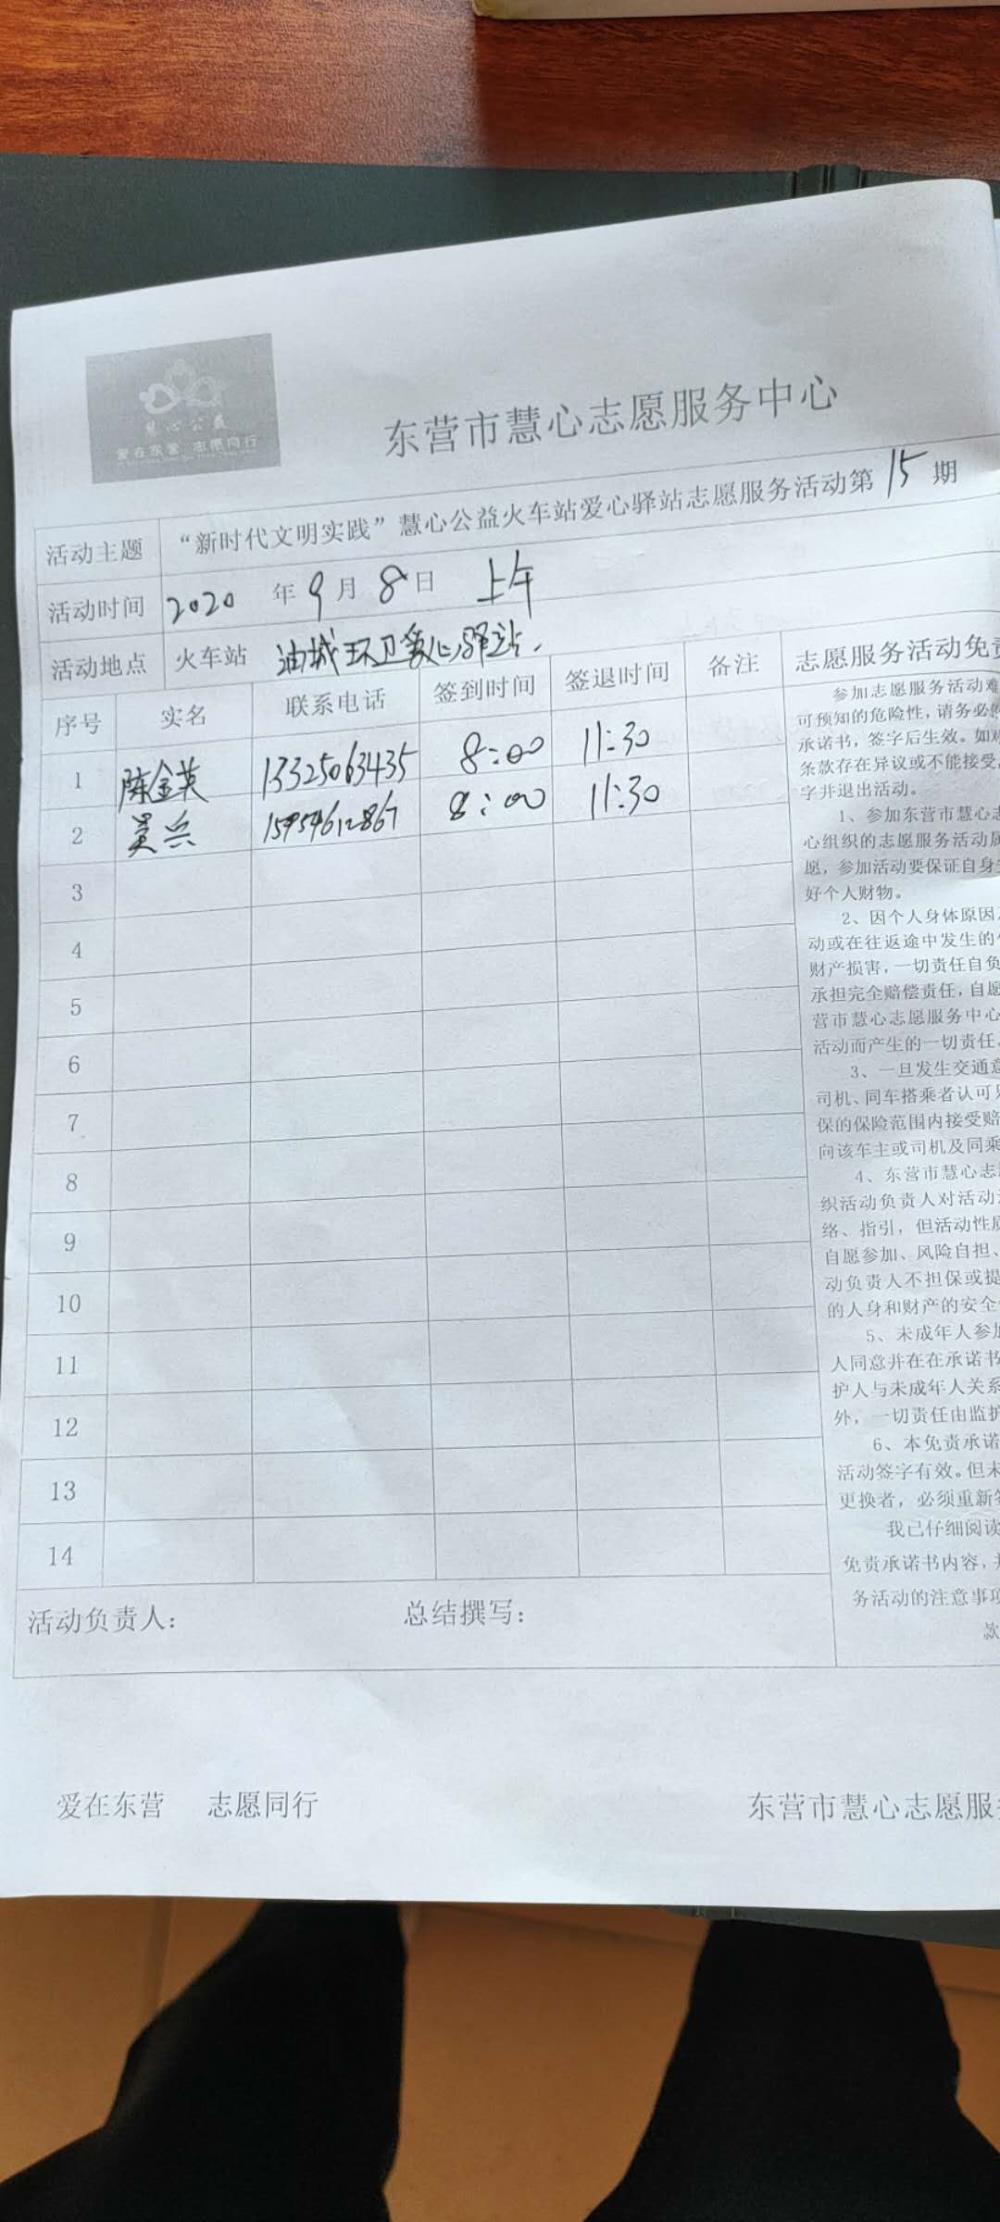 慧心公益
爱在东营 志愿同行
东营市慧心志愿服务中心
活动主题 “新时代文明实践”慧心公益火车站爱心驿站志愿服务活动第15期
活动时间 2020 年 9 月 8 日 上午
活动地点 火车站 油城环卫爱心驿站.
序号 实名 联系电话 签到时间 签退时间 备注
1 陈金英 13325063435 8:00 11:30
2 吴兵 15954612867 8:00 11:30
3
4
5
6
7
8
9
10
11
12
13
14
活动负责人： 总结撰写：
志愿服务活动免责
参加志愿服务活动难
可预知的危险性，请务必
承诺书，签字后生效。如对
条款存在异议或不能接受，
字并退出活动。
1、参加东营市慧心志
心组织的志愿服务活动属
愿，参加活动要保证自身
好个人财物。
2、因个人身体原因
动或在往返途中发生的
财产损害，一切责任自负
承担完全赔偿责任，自愿
营市慧心志愿服务中心
活动而产生的一切责任
3、一旦发生交通意
司机、同车搭乘者认可
保的保险范围内接受赔
向该车主或司机及同乘
4、东营市慧心志
织活动负责人对活动
络、指引，但活动性质
自愿参加、风险自担、
动负责人不担保或提
的人身和财产的安全
5、未成年人参加
人同意并在在承诺书
护人与未成年人关系
外，一切责任由监护
6、本免责承诺
活动签字有效。但未
更换者，必须重新签
我已仔细阅读
免责承诺书内容，
务活动的注意事项
款
爱在东营 志愿同行 东营市慧心志愿服务